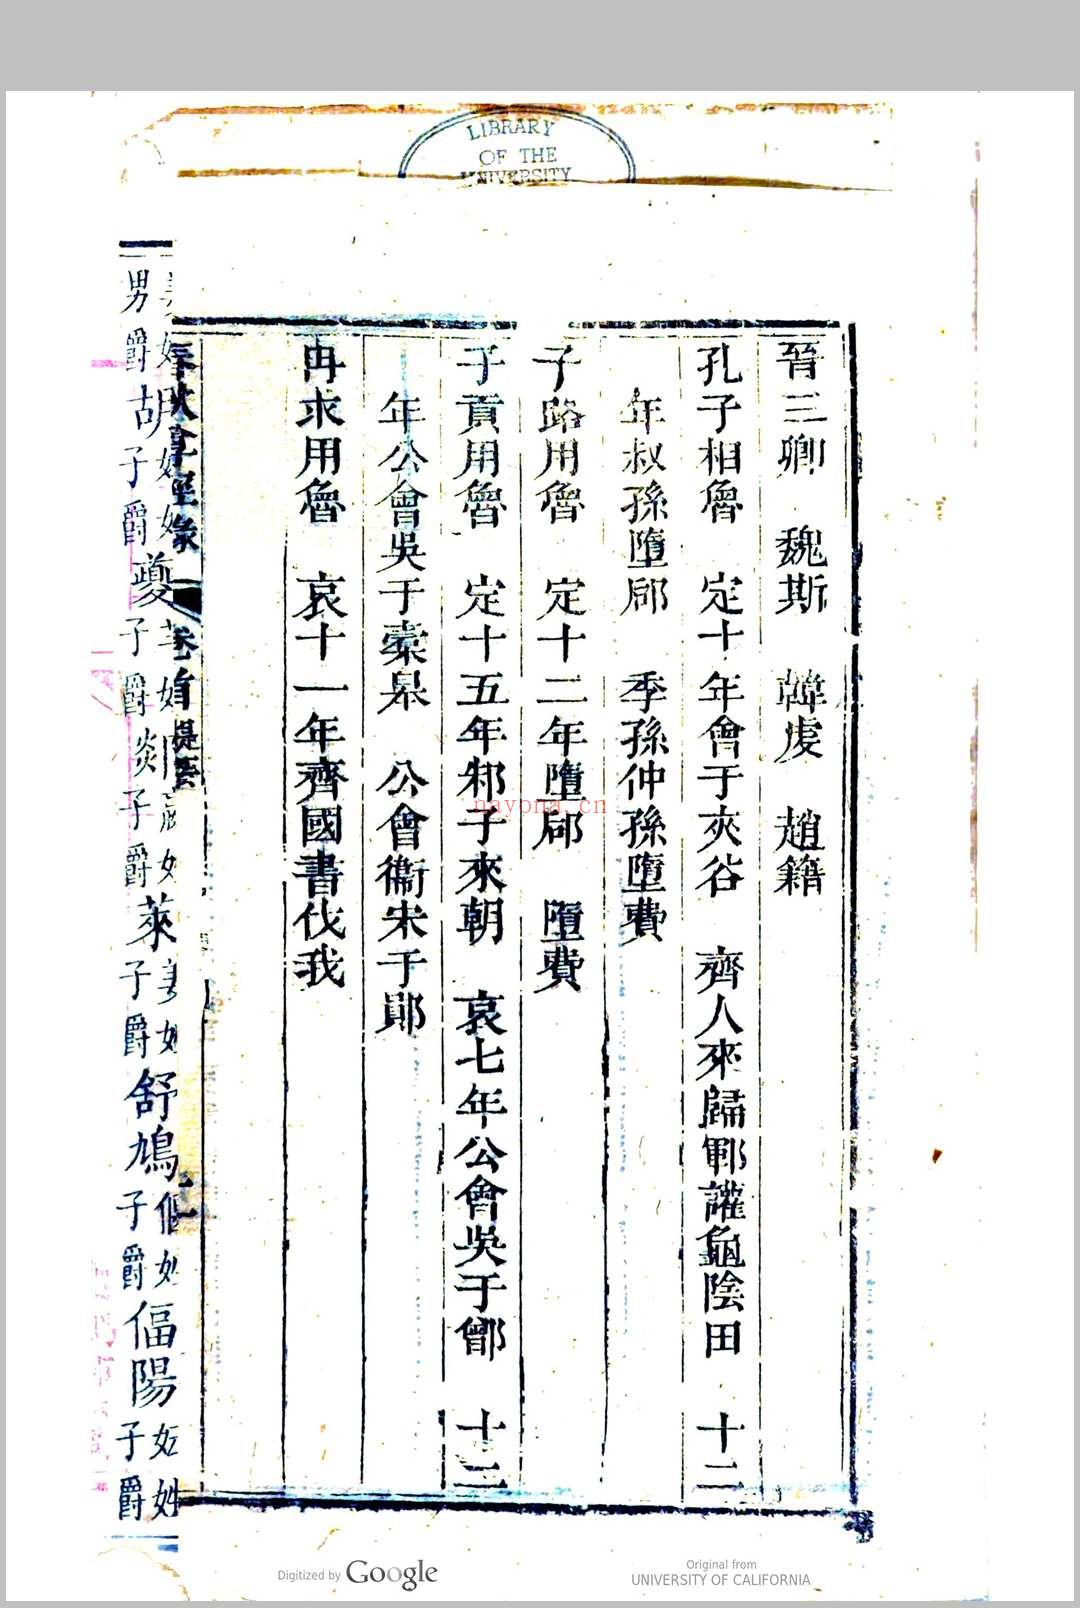 LIBRARY
OF THE
UNIVERSITY
晉三卿　魏斯　韓虔　趙籍
孔子相魯　定十年會于夾谷　齊人來歸鄆讙龜陰田　十二
年叔孫墮郈　季孫仲孫墮費
子路用魯　定十二年墮郈　墮費
子貢用魯　定十五年邾子來朝　哀七年公會吳于鄫　十二
年公會吳于橐皋　公會衞宋于鄖
冉求用魯　哀十一年齊國書伐我
卷首 提要
男爵 胡 子爵 夔 子爵 郯 子爵 萊 子爵 舒鳩 子爵 偪陽 子爵
姜姓
妘姓
nayona.cn
Digitized by Google
Original from
UNIVERSITY OF CALIFORNIA